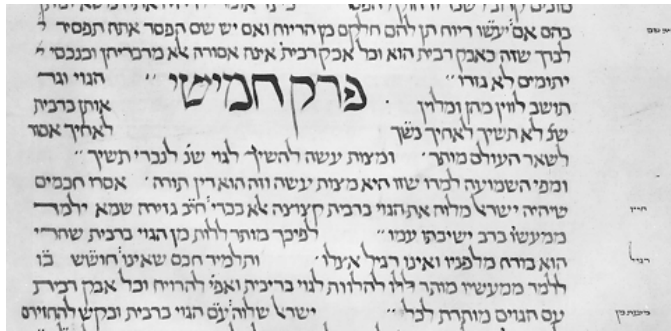 בהם אם יעשו ריוח תן להם חלקם מן הריוח ואם יש שם הפסד אתה תפסיד ל
לבדך שזה כאבק רבית הוא וכל אבק רבית אינה אסורה אלא מדבריהן ובנכסי י
יתומים לא גזרו״ פרק חמישי ״ הגוי וגר
תושב לווין מהן ומלוין אותן ברבית
שנ׳ לא תשיך לאחיך נשך לאחיך אסור
לשאר העולם מותר ומצות עשה להשיך לגוי שנ׳ לנכרי תשיך ״
ומפי השמועה למדו שזו היא מצות עשה וזה הוא דין תורה אסרו חכמים
שיהיה ישראל מלוה את הגוי ברבית קצוצה אלא בכדי חייו גזירה שמא ילמד
ממעשיו ברב ישיבתו עמו ״ לפיכך מותר ללות מן הגוי ברבית שהרי
הוא בורח מלפניו ואינו רגיל אצלו ״ ותלמיד חכם שאינו חושש בו
ללמד ממעשיו מותר לו להלוות לגוי ברבית ואפי׳ להרויח וכל אבק רבית
עם הגוים מותרת לכל ״ ישראל שלוה הגוי ברבית ובקש להחזירם